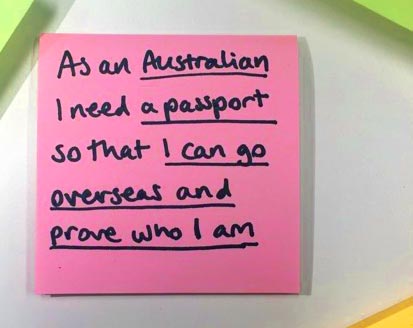 As an Australian
I need a passport
so that I can go
overseas and
prove who I am